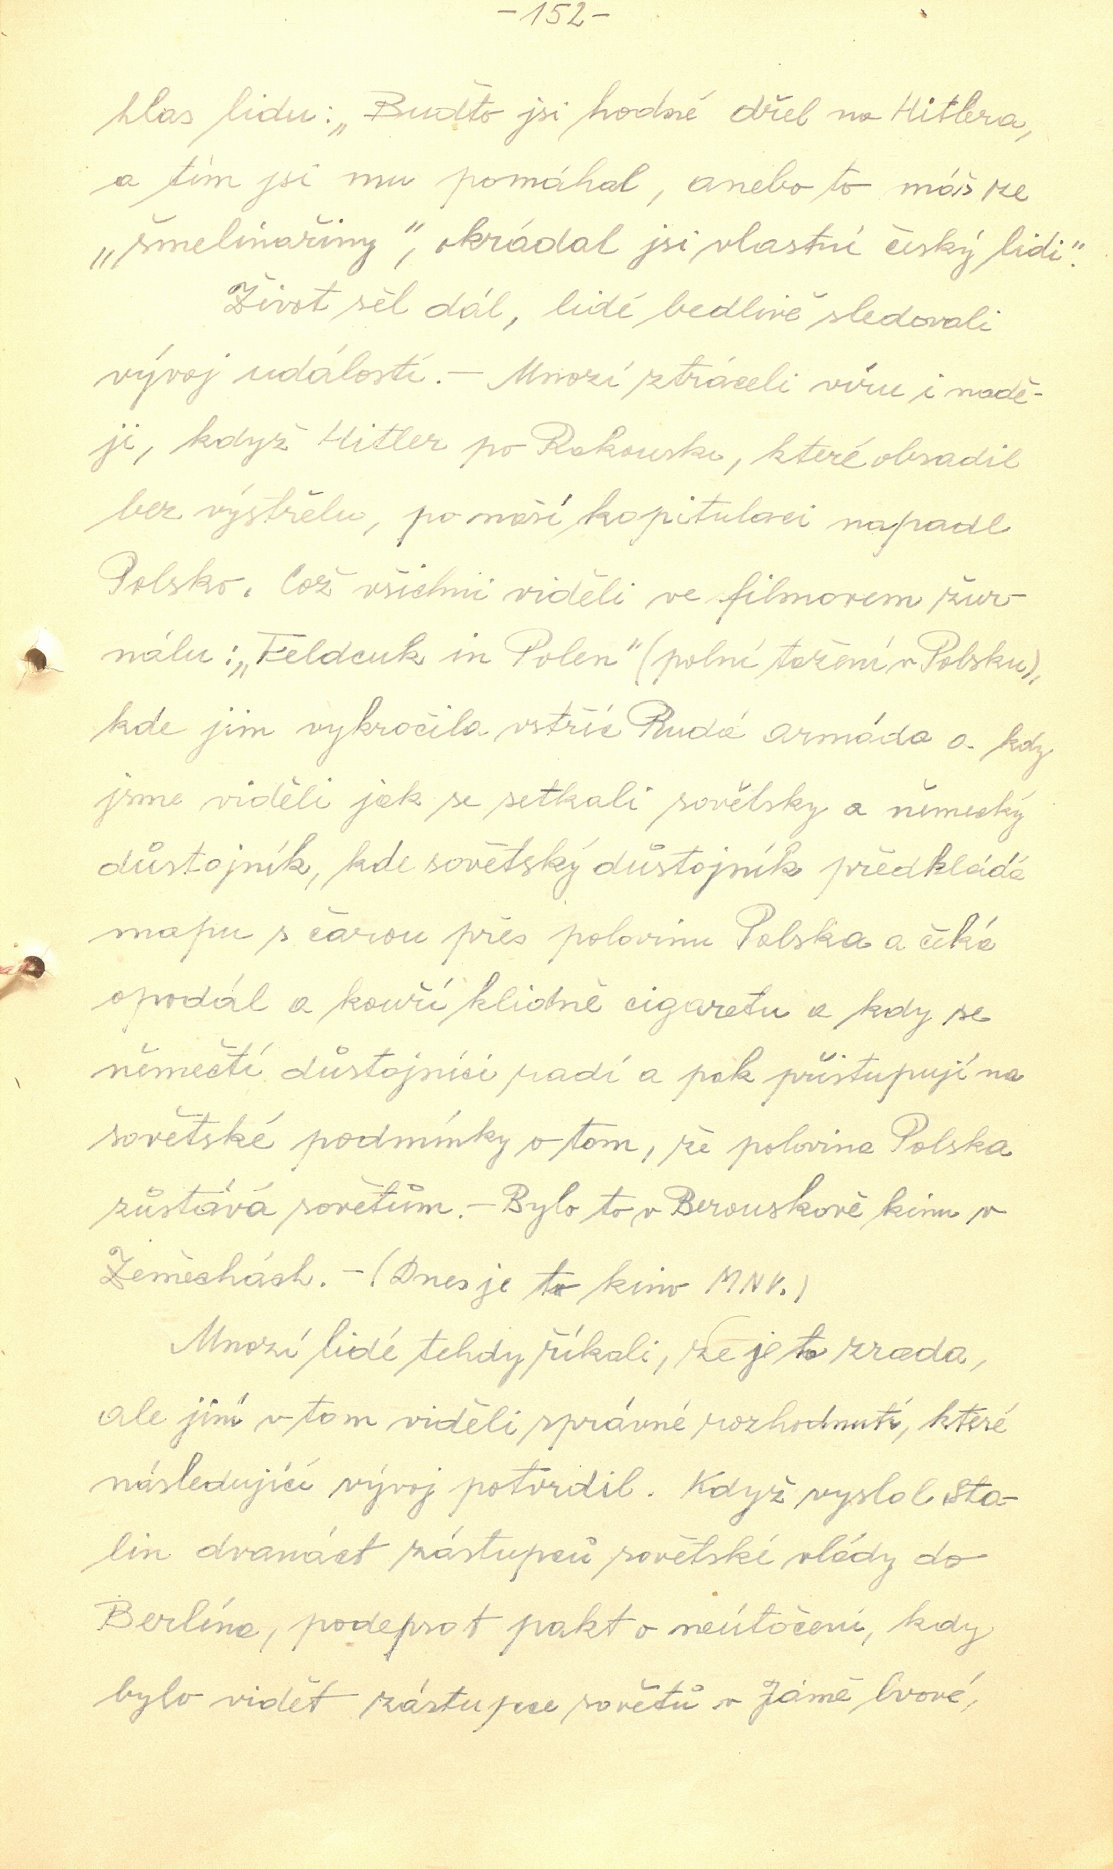 -152-
hlas lidu: „Buďto jsi hodně dřel na Hitlera,
a tím jsi mu pomáhal, anebo to máš ze
„šmelinařiny", okrádal jsi vlastní český lidi".
Život šel dál, lidé bedlivě sledovali
vývoj událostí. - Mnozí ztráceli víru i nadě-
ji, když Hitler po Rakousku, které obsadil
bez výstřelu, po naší kapitulaci napadl
Polsko. Což všichni viděli ve filmovem žur-
nálu: „Feldcuk in Polen" (polní tažení v Polsku),
kde jim vykročila vstříc Rudá armáda a kdy
jsme viděli jak se setkali sovětsky a německý
důstojník, kde sovětský důstojník předkládá
mapu s čarou přes polovinu Polska a čeká
opodál a kouří klidně cigaretu a kdy se
němečtí důstojníci radí a pak přistupují na
sovětské podmínky o tom, že polovina Polska
zůstává sovětům. - Bylo to v Berouskově kinu v
Zeměchách. - (Dnes je to kino MNV.)
Mnozí lidé tehdy říkali, že je to zrada,
ale jiní v tom viděli správné rozhodnutí, které
následující vývoj potvrdil. Když vyslal Sta-
lin dvanáct zástupců sovětské vlády do
Berlína, podepsat pakt o neútočení, kdy
bylo vidět zástupce sovětů v Jámě lvové,